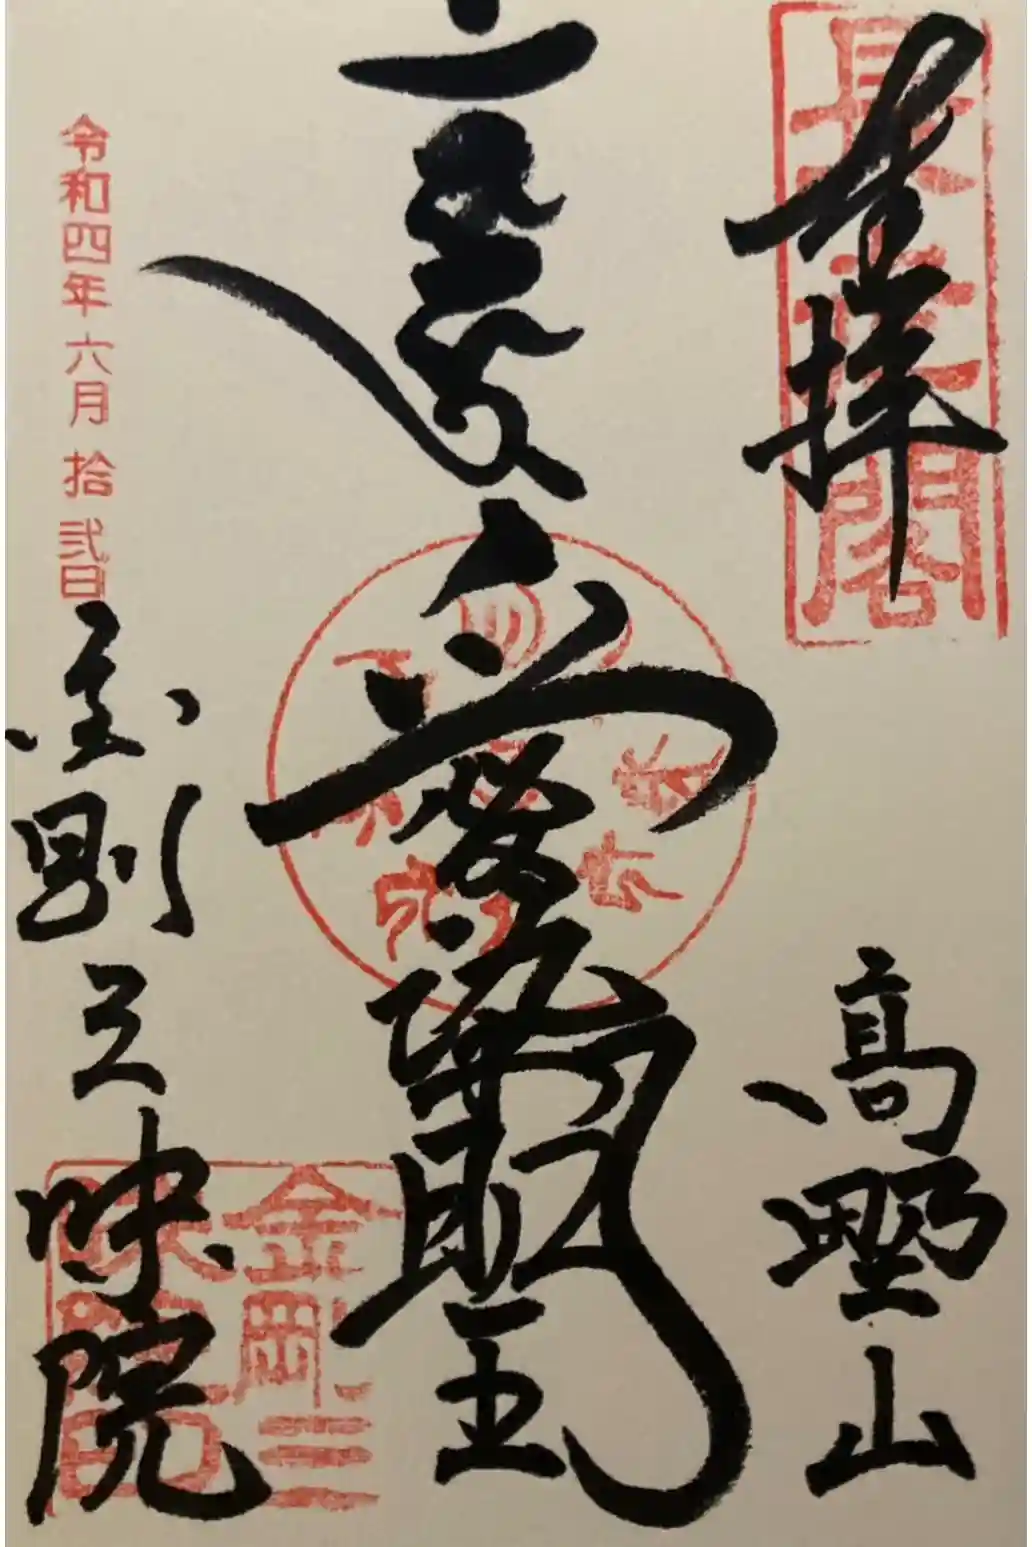 奉拝
高野山
愛染明王
令和四年六月拾弐日
金剛三昧院
金剛三
昧院印